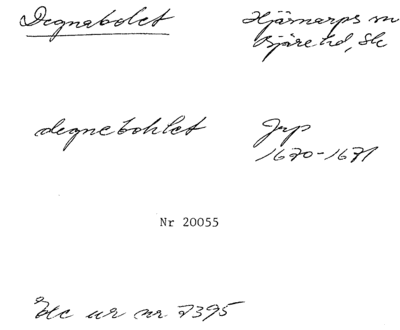 Degnabolet
Hjärnarps sn
Bjäre hd, Sk
degnebohlet
Jrp
1670-1671
Nr 20055
Exc ur nr 7395